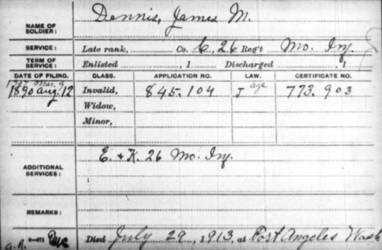 Dennis, James M.
NAME OF SOLDIER:
SERVICE: Late rank, Co. E, 26 Reg't Mo. Inf.
TERM OF SERVICE: Enlisted , 1 Discharged , 1
DATE OF FILING. CLASS. APPLICATION NO. LAW. CERTIFICATE NO.
1890 Aug. 12 Invalid, 845.104 J 773.903
Widow,
Minor,
E. & K. 26 Mo. Inf.
ADDITIONAL SERVICES:
REMARKS:
Died July 29, 1913, at Port Angeles Wash